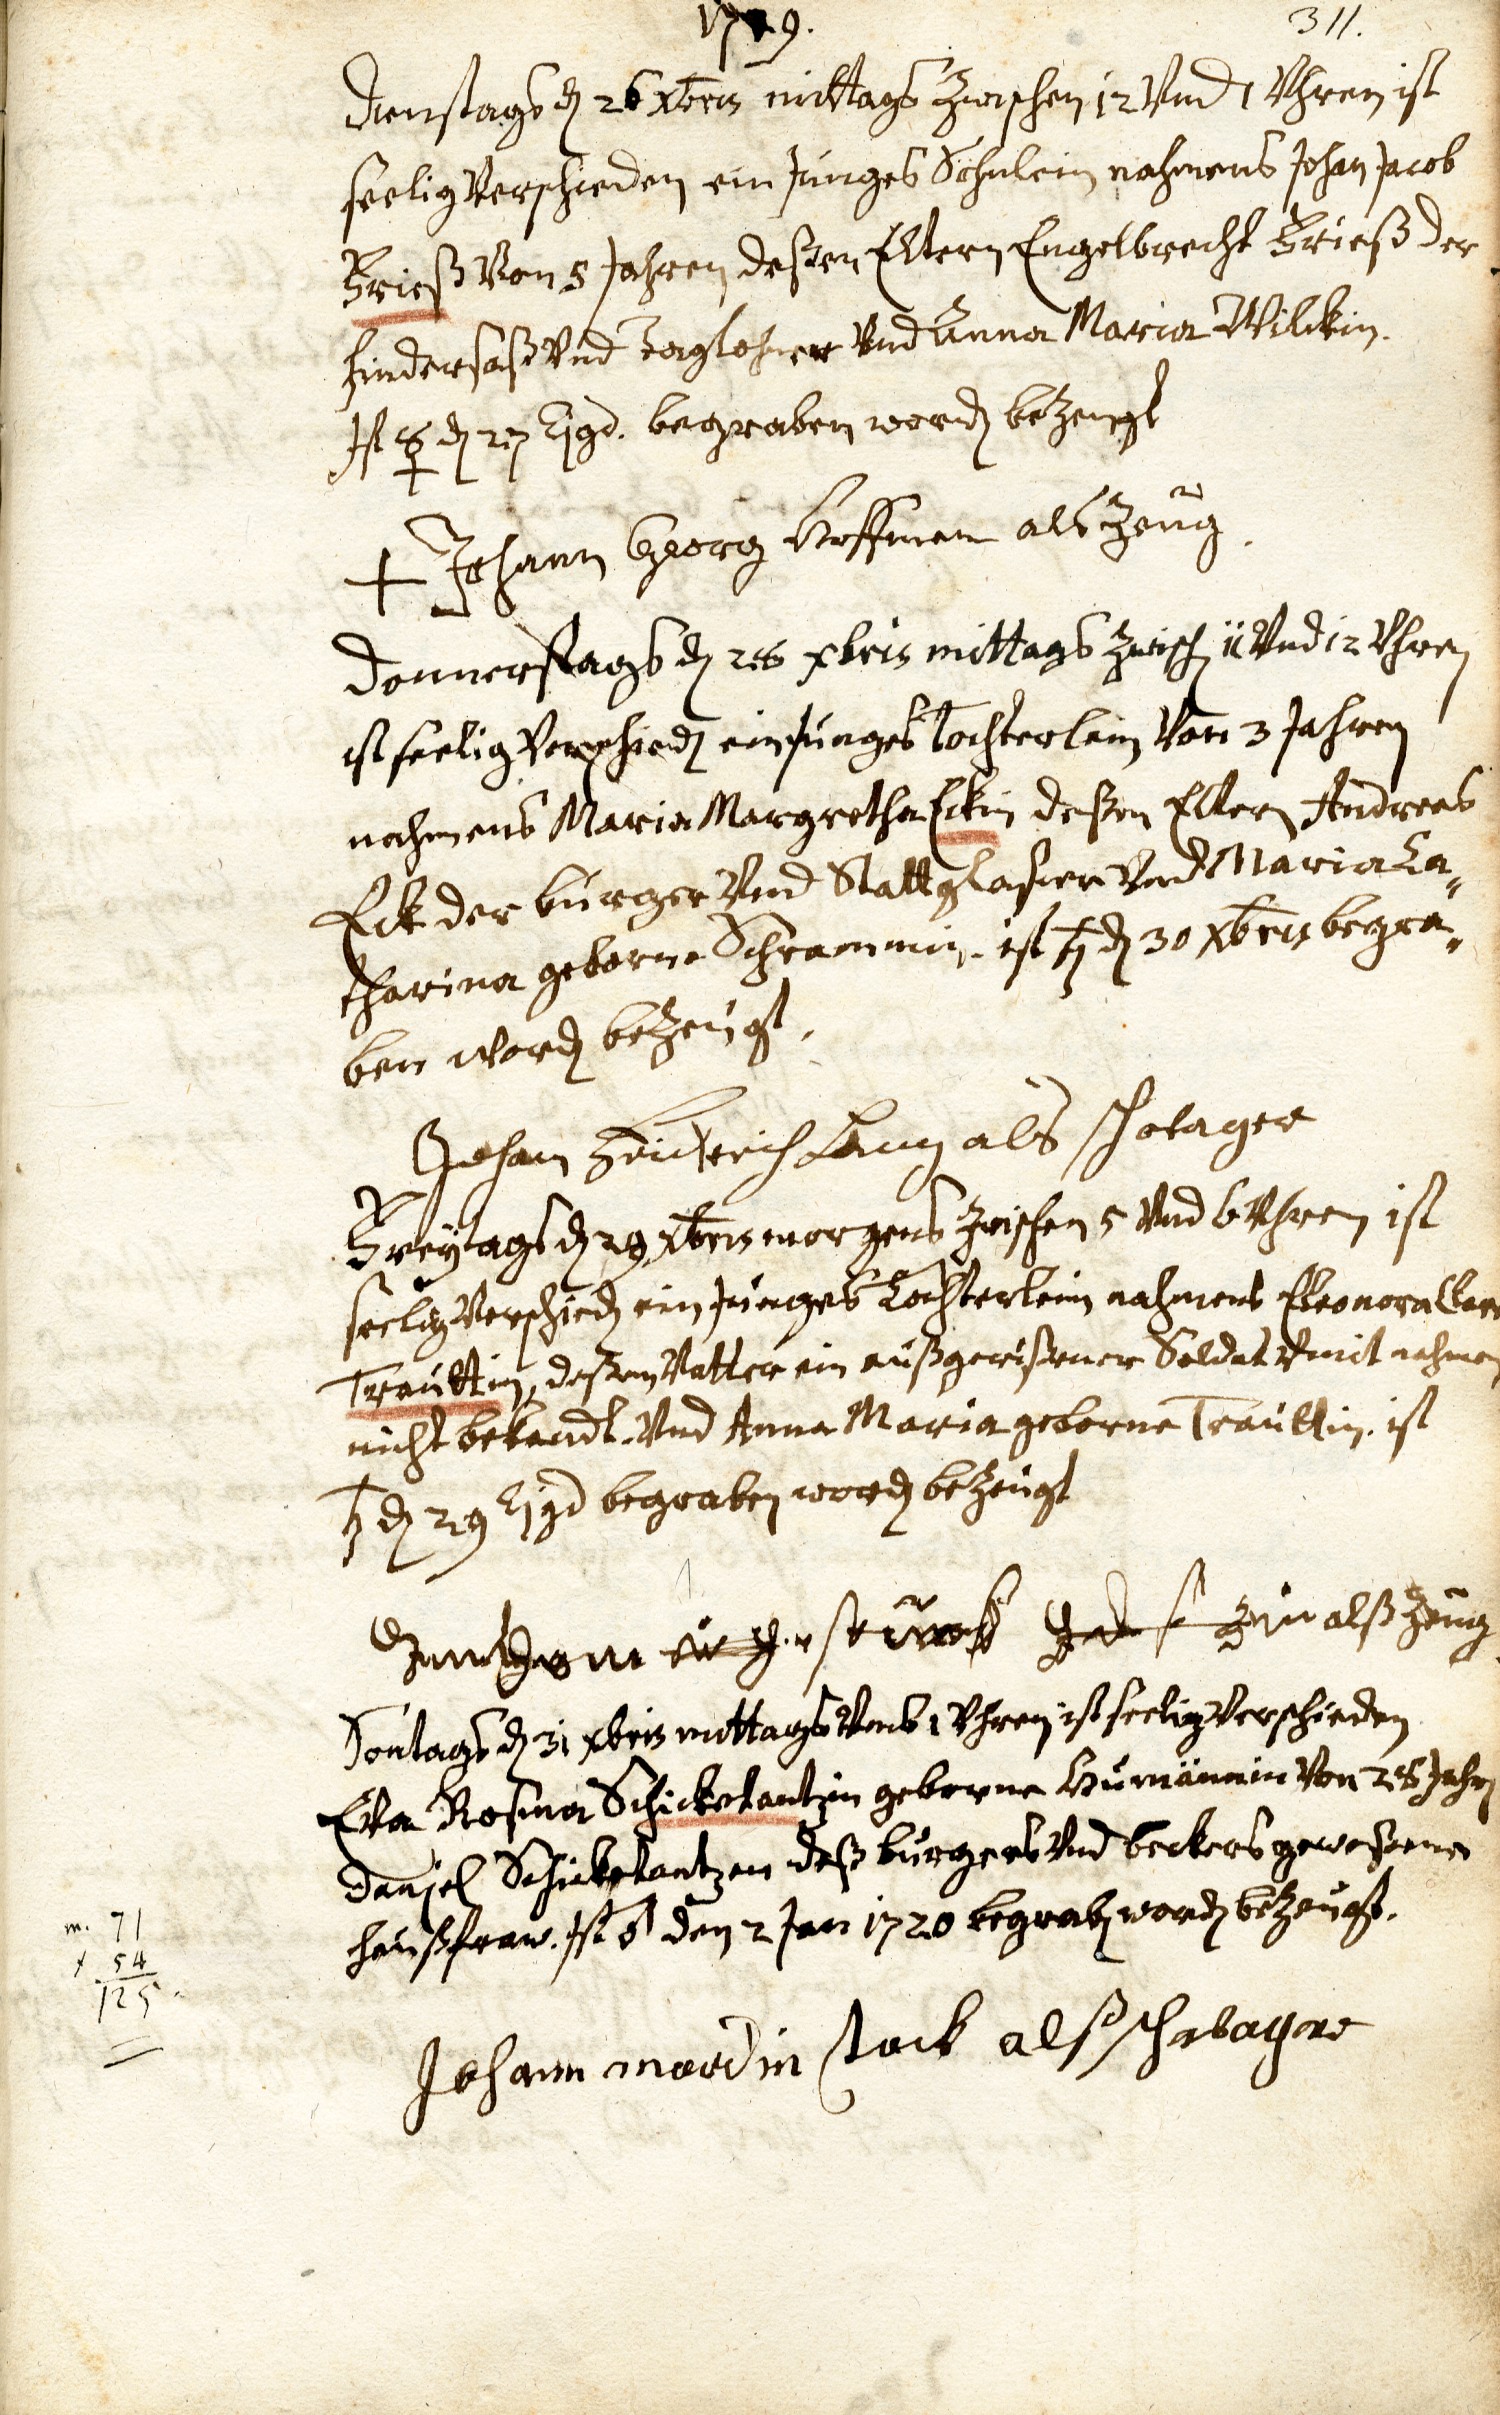 1719.
311.
Dienstags d 26 Xbris mittags Zwischen 12 Vnd 1 Vhren ist
seelig Verschieden ein Junges Söhnlein nahmens Johan Jacob
Frieß Von 5 Jahren deßen Eltern Engelbrecht Frieß der
hindersaß Vnd Taglohner Vnd Anna Maria Wilckin.
Ist ☿ d 27 Ejgd. begraben word bezeugt
+ Johann Georg Hoffman als Zeug
Donnerstags d 28 Xbris mittags Zwisch 11 Vnd 12 Vhren
ist seelig Verschied ein Junges Tochterlein Von 3 Jahren
nahmens Maria Margretha Eckin deßen Eltern Andreas
Eck der burger Vnd Stattglaßer Vnd Maria Ca„
tharina geborne Schrammin. ist ♄ d 30 Xbris begra„
ben word bezeugt.
Johan Lang als
Freÿtags d 29 Xbris morgens Zwischen 5 Vnd 6 Vhren ist
seelig Verschied ein Junges Töchterlein nahmens Eleonora
Trauttin, deßen Vatter ein außgerißener Soldat mit nahmen
nicht bekandt. Vnd Anna Maria geborne Trauttin. ist
♄ d 29 Ejgd begraben word bezeugt
alß Zeug
Sontags d 31 Xbris mittags Vmb 1 Vhren ist seelig Verschieden
Eva Rosina Schicketantzin geborne Von 28 Jahr
Daniel Schicketantzen deß burgers Vnd beckers geweßene
haußfraw. Ist ♂ den 2 Jan 1720 begrab word bezeugt.
m. 71
54
125
Johann mardin stock alß